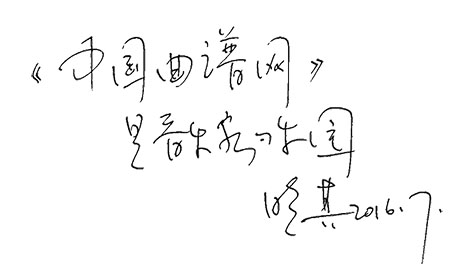 《中国曲谱网》
是音乐家的乐园
晓其 2016.7.